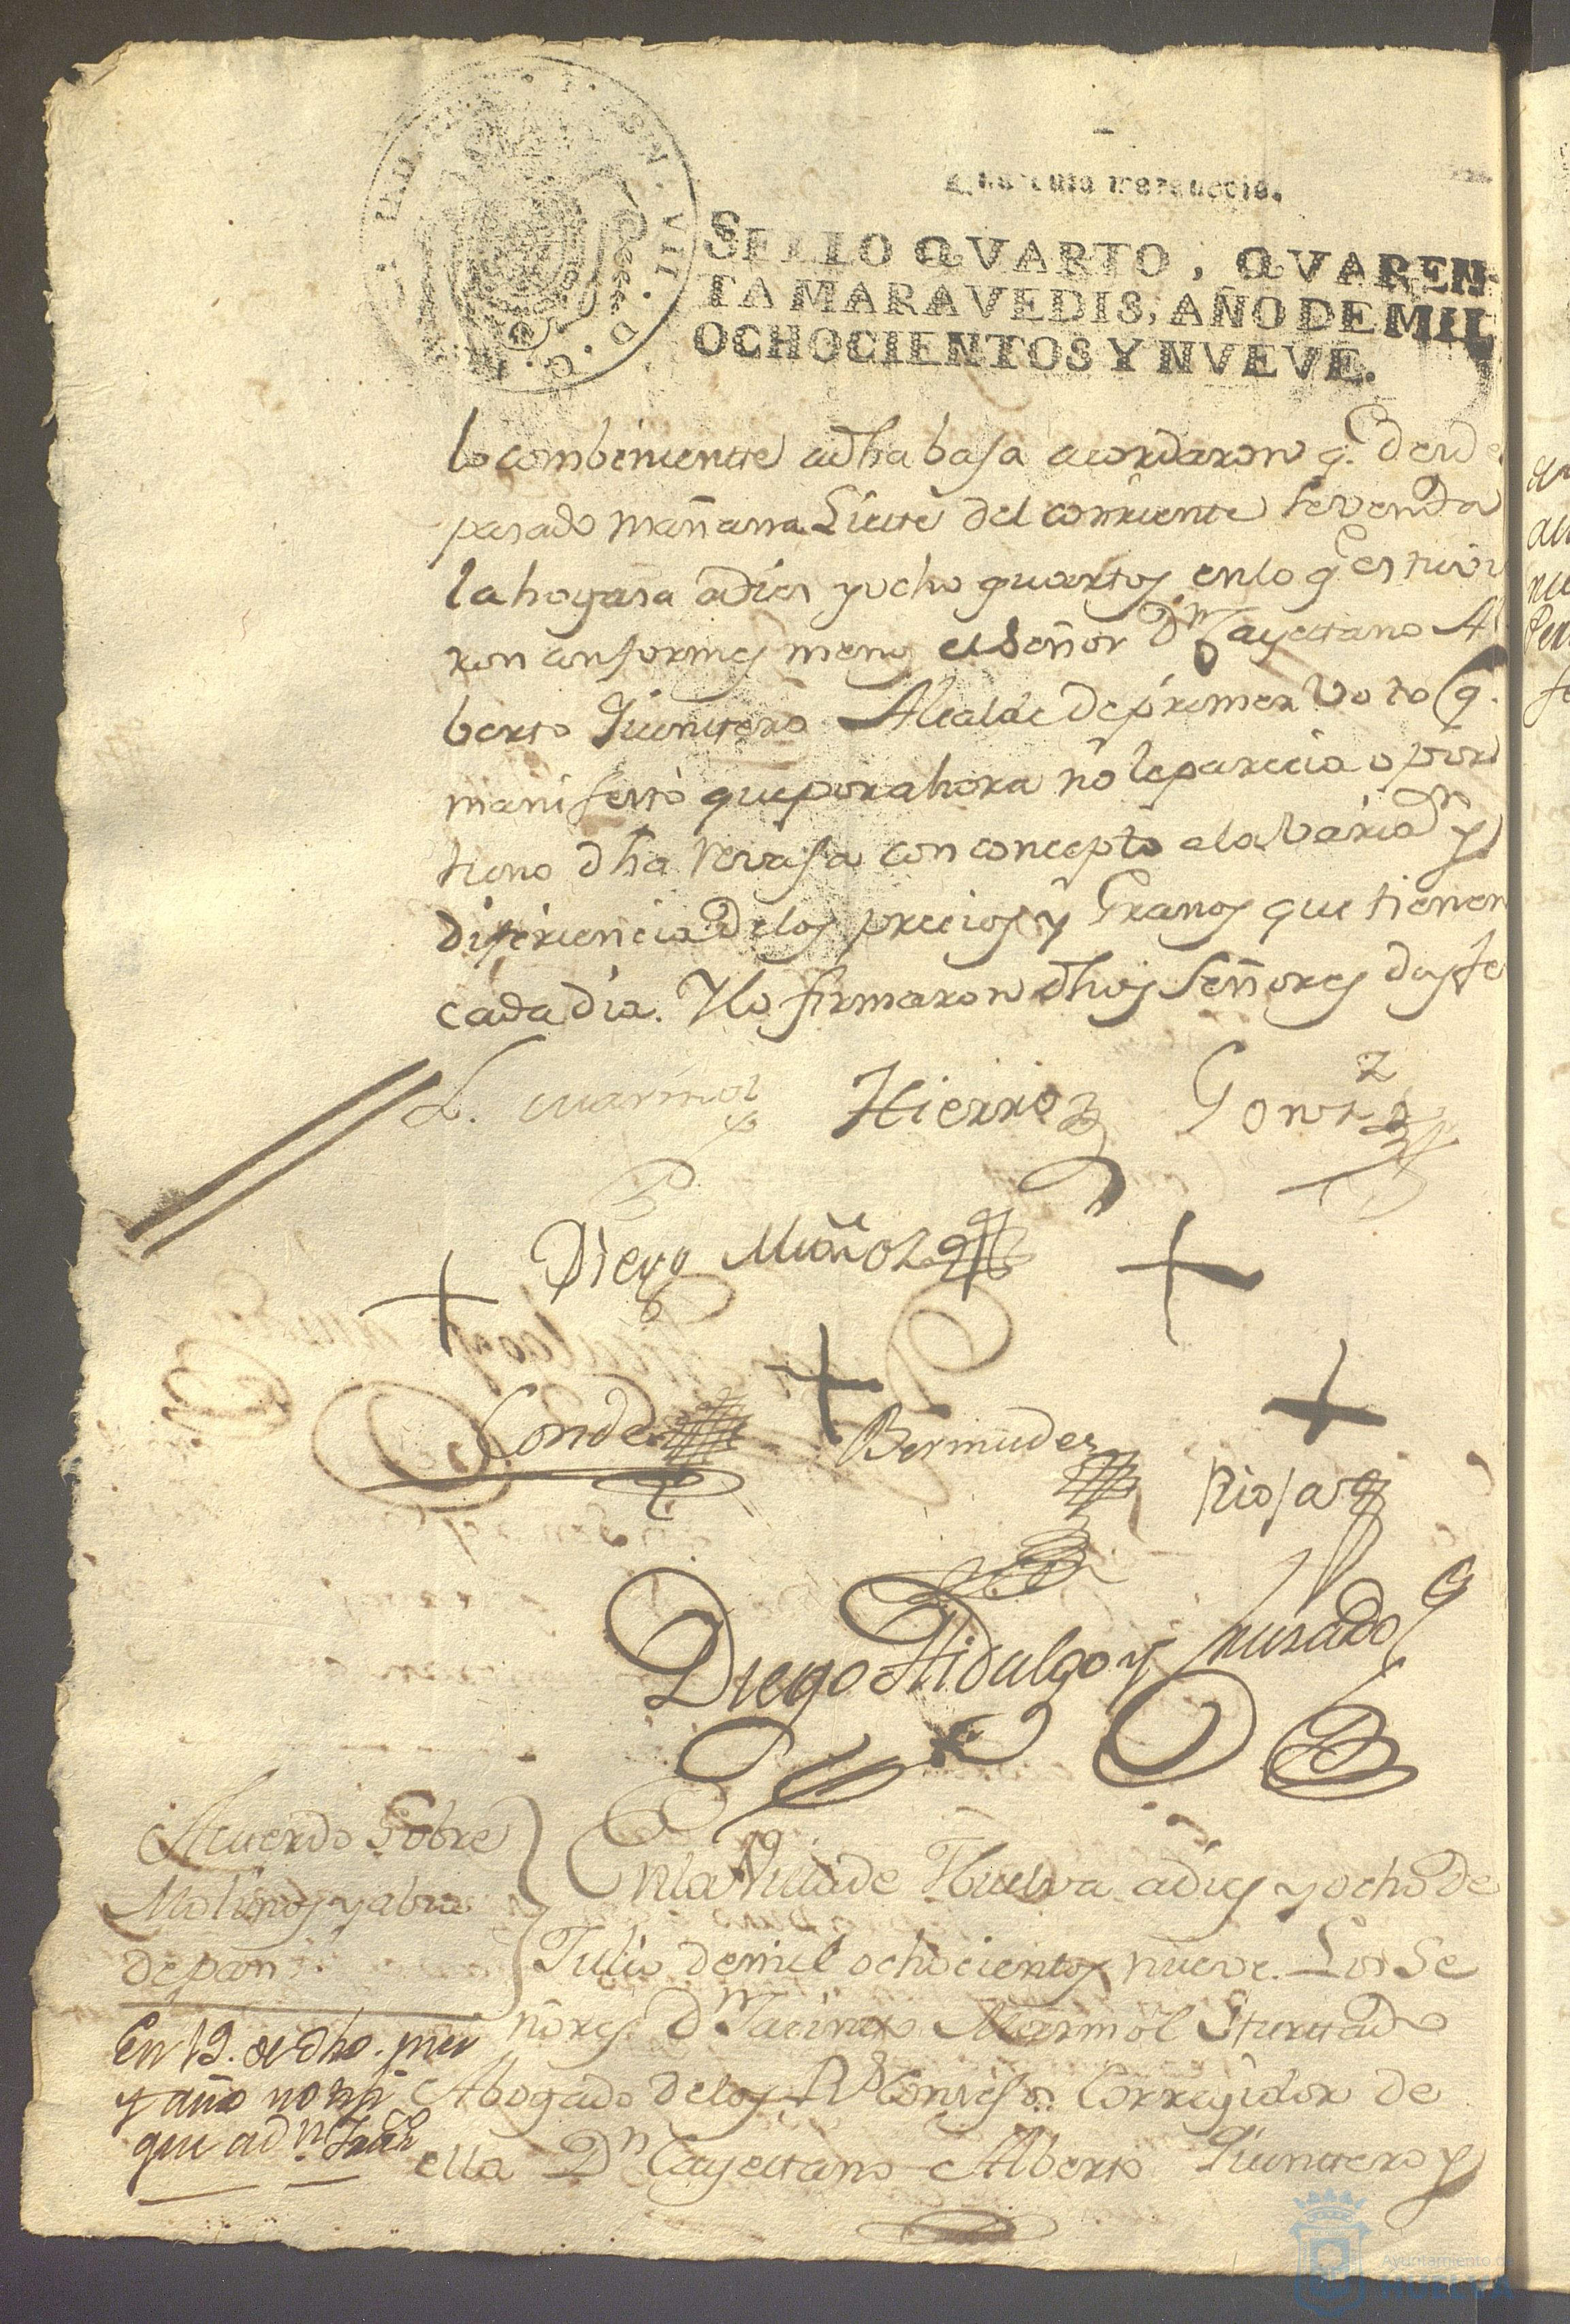 Quarenta maravedis.
SELLO QVARTO, QVAREN-
TA MARAVEDIS, AÑO DE MIL
OCHOCIENTOS Y NVEVE.
lo combeniente a dha basa acordaron q.e desde
pasado mañana Siete del corriente se venda
la hogasa a dies y ocho quartos en lo q.e estuvie
ron conformes menos el Señor Dn Cayettano Al
berto Quinttero Alcalde de primer Voto q.
manifestó que por ahora nó le parecia opor
tuno dha revasa con concepto a la variacn y
diferiencia de los precios y Granos que tienen
cada dia. Y lo firmaron dhos Señores doy fe
L. Marmol Hierro Gonzz
Diego Muñoz
Conde Bermudez Riofar
Diego Hidalgo y Jurado
Acuerdo Sobre
Molinos y abro
de pan
En la Villa de Huelva a dies y ocho de
Julio de mil ochocientos nueve. Los Se
ñores Dn Jacintto Marmol Hurttado
Abogado de los Rs Consejos Corregidor de
ella Dn Cayettano Alberto Quinttero y
En 19. de dho. mes
y año notifi
que a dn. Juan
Ayuntamiento de
HUELVA